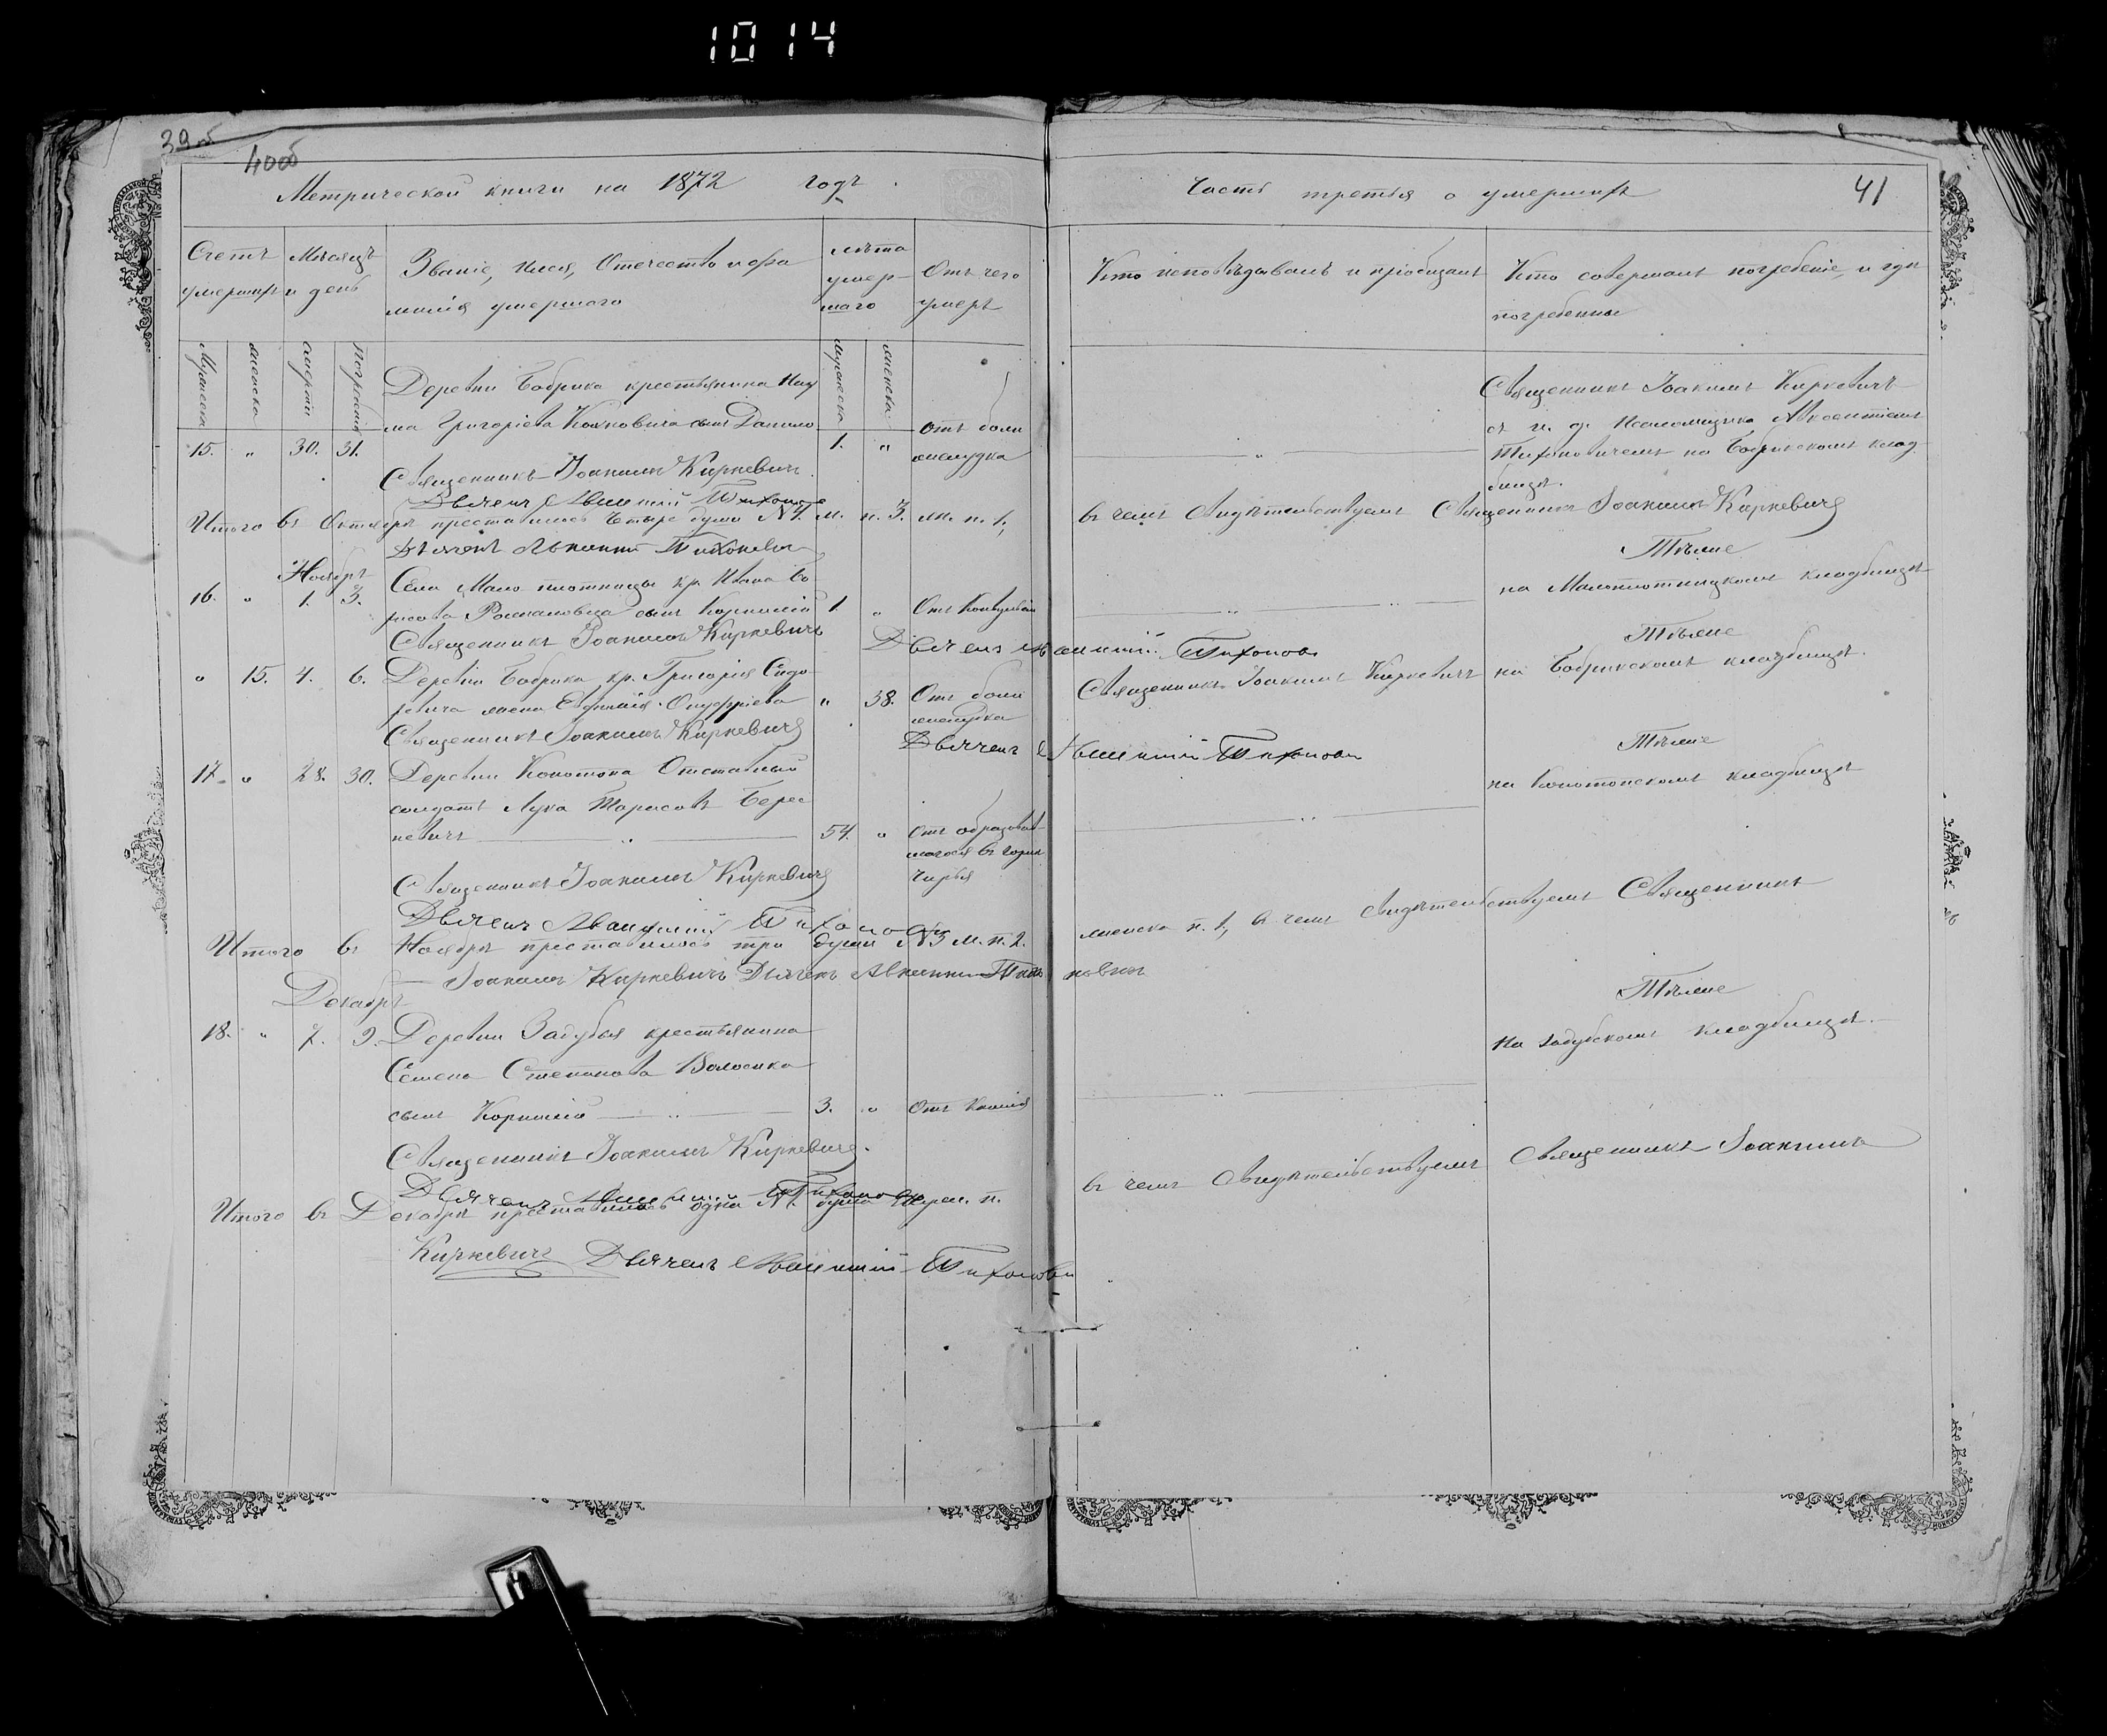 1014
39об
40об
Метрической книги на 1872 годъ.
Часть третья о умершихъ
41
Счетъ умершихъ
Мѣсяцъ и день
Званіе, имя, Отчество и фамилія умершаго
лѣта умершаго
Отъ чего умеръ
Кто исповѣдывалъ и пріобщалъ
Кто совершалъ погребеніе, и гдѣ погребенны
Мужеска
женска
смерти
Погребенія
мужеска
женска
Деревни Бобрика крестьянина Нау
ма Григоріева сынъ Данило
15. " 30. 31.
1. "
отъ боли
желудка
Священникъ Іоакимъ Киркевичъ
съ и. д. Псаломщика Авксентіемъ
Тихоновичемъ на Бобрикскомъ клад
бищѣ.
Священникъ Іоакимъ Киркевичъ
Дьячекъ
Итого въ Октябрѣ преставилось четыре души №4. м. п. 3. жн. п. 1,
въ чемъ свидѣтельствуемъ Священникъ Іоакимъ Киркевичъ
Дьячекъ
Ноябрь
16. " 1. 3.
Села Мало плотницы кр. Ивана Бо
рисова сынъ Корнилій 1. "
Тѣже
на Малоплотницкомъ кладбищѣ
Священникъ Іоакимъ Киркевичъ
Дьячекъ
" 15. 4. 6.
Деревни Бобрика кр. Григорія Сидо
ровича жена Евфимія Онуфріева " 38.
Отъ боли
желудка
Священникъ Іоакимъ Киркевичъ
Тѣже
на Бобрикскомъ кладбищѣ.
Священникъ Іоакимъ Киркевичъ
Дьячекъ
17. " 28. 30.
Деревни Конотопа Отставный
солдатъ Лука Тарасовъ Берес
невичъ 54. "
Отъ образовав
шагося въ горлѣ
чирья
Тѣже
на Конотопскомъ кладбищѣ
Священникъ Іоакимъ Киркевичъ
Дьячекъ
Итого въ Ноябрѣ преставилось три души №3 м. п. 2.
женска п. 1, въ чемъ свидѣтельствуемъ Священникъ
Іоакимъ Киркевичъ Дьячекъ
Декабрь
18. " 7. 9.
Деревни Задубья крестьянина
Семена Степанова Волосика
сынъ Корнилій 3. " Отъ кашля
Тѣже
на Задубскомъ кладбищѣ.
Священникъ Іоакимъ Киркевичъ.
Дьячекъ
Итого въ Декабрѣ преставилось одна №1. душа Муж. п.
въ чемъ свидѣтельствуемъ Священникъ Іоакимъ
Киркевичъ Дьячекъ